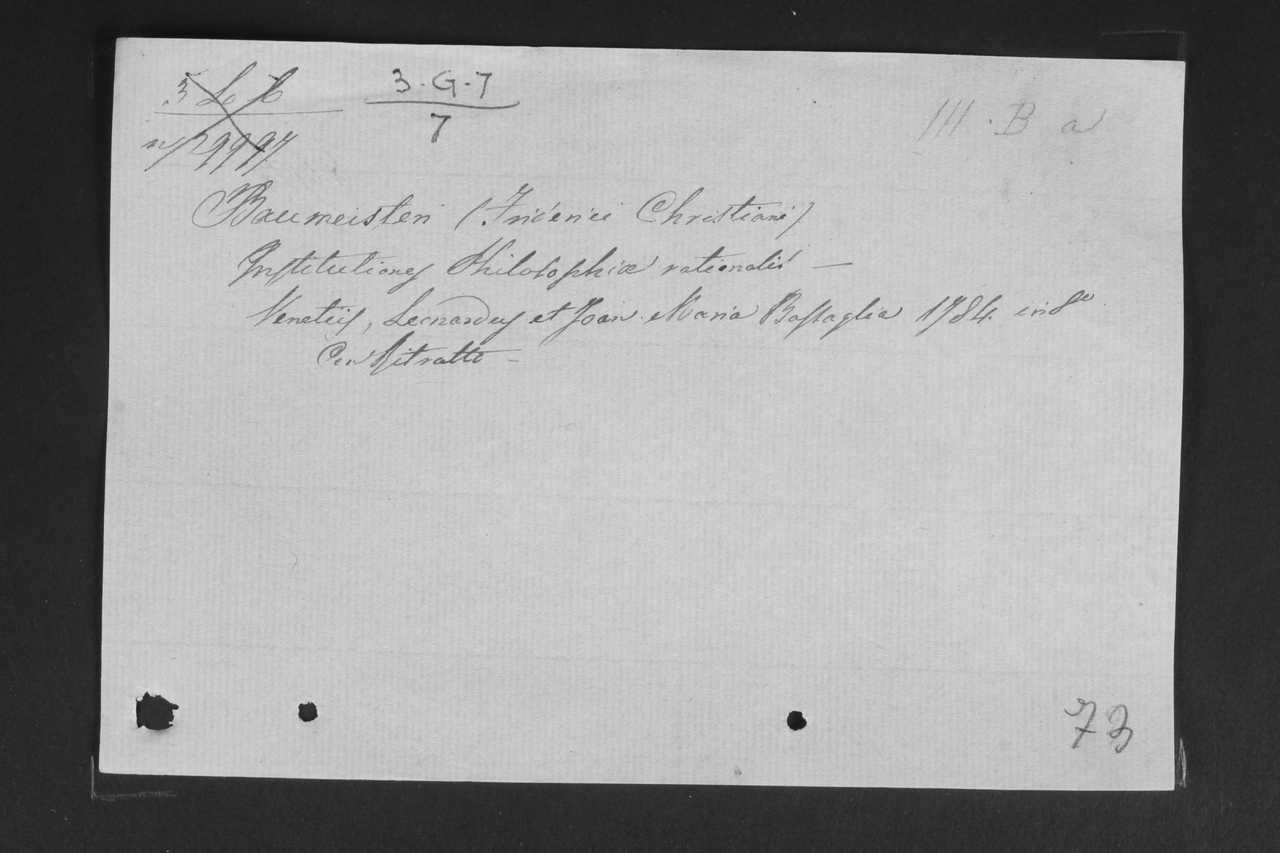 3-G-7
7
III. B a
Baumeisteri (Friderici Christiani)
Institutiones Philosophiæ rationalis —
Venetiis, Leonardus et Joan. Maria Bassaglia 1784. in 8º
Con Ritratto —
73